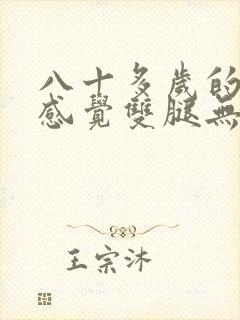 八十多歲的
感覺雙腿無
王宗沐